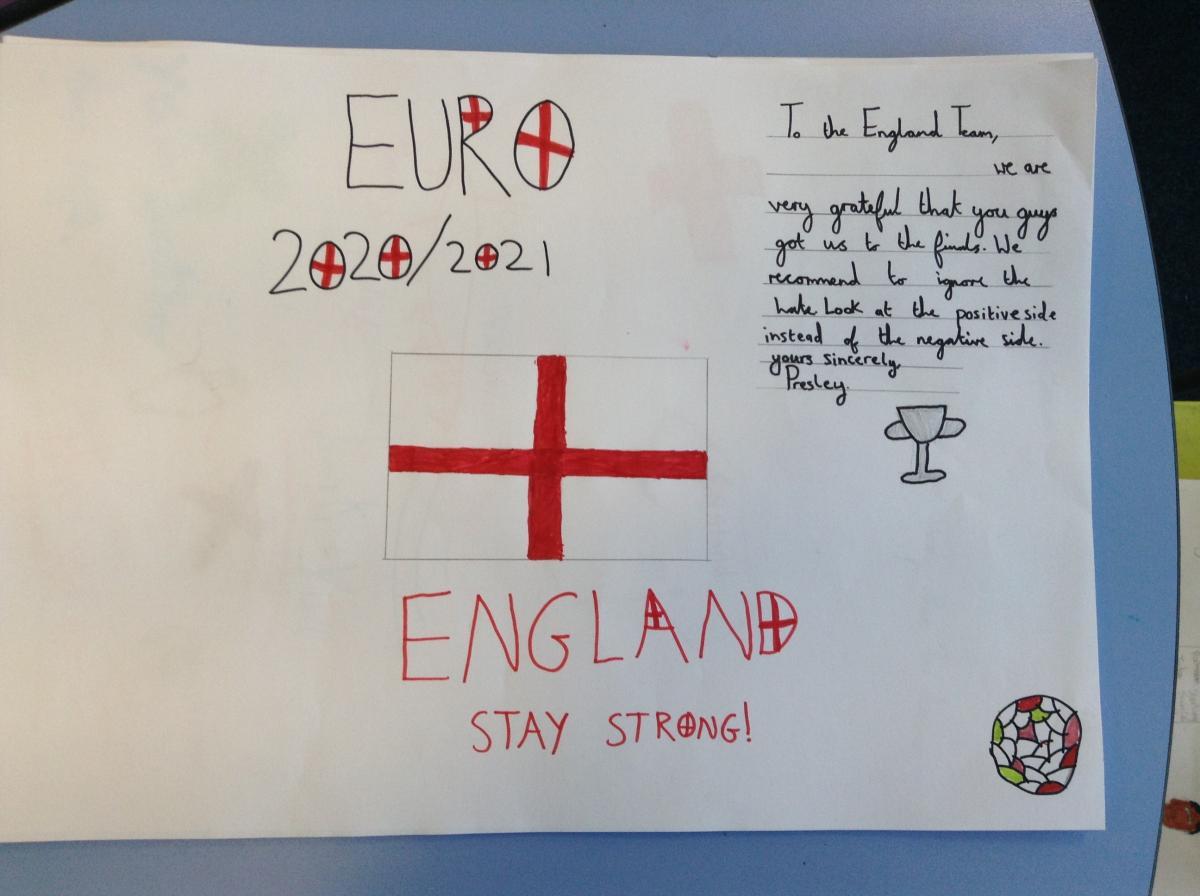 EURO
2020/2021
To the England Team,
we are
very grateful that you guys
got us to the finals. We
recommend to ignore the
hate Look at the positive side
instead of the negative side.
yours sincerely,
Presley.
ENGLAND
STAY STRONG!